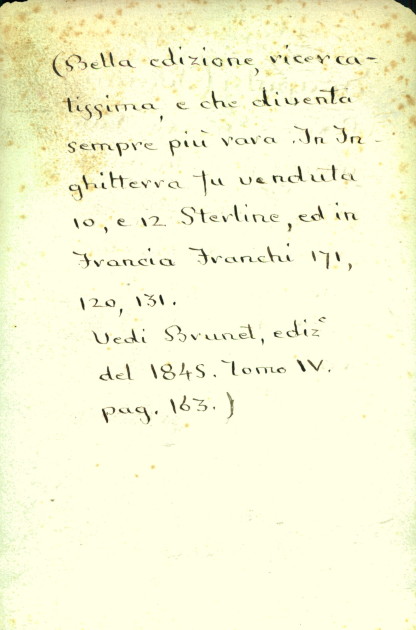 (Bella edizione, ricerca-
tissima, e che diventa
sempre più rara. In In-
ghilterra fu venduta
10, e 12 Sterline, ed in
Francia Franchi 171,
120, 131.
Vedi Brunet, ediz.e
del 1845. Tomo IV.
pag. 163.)